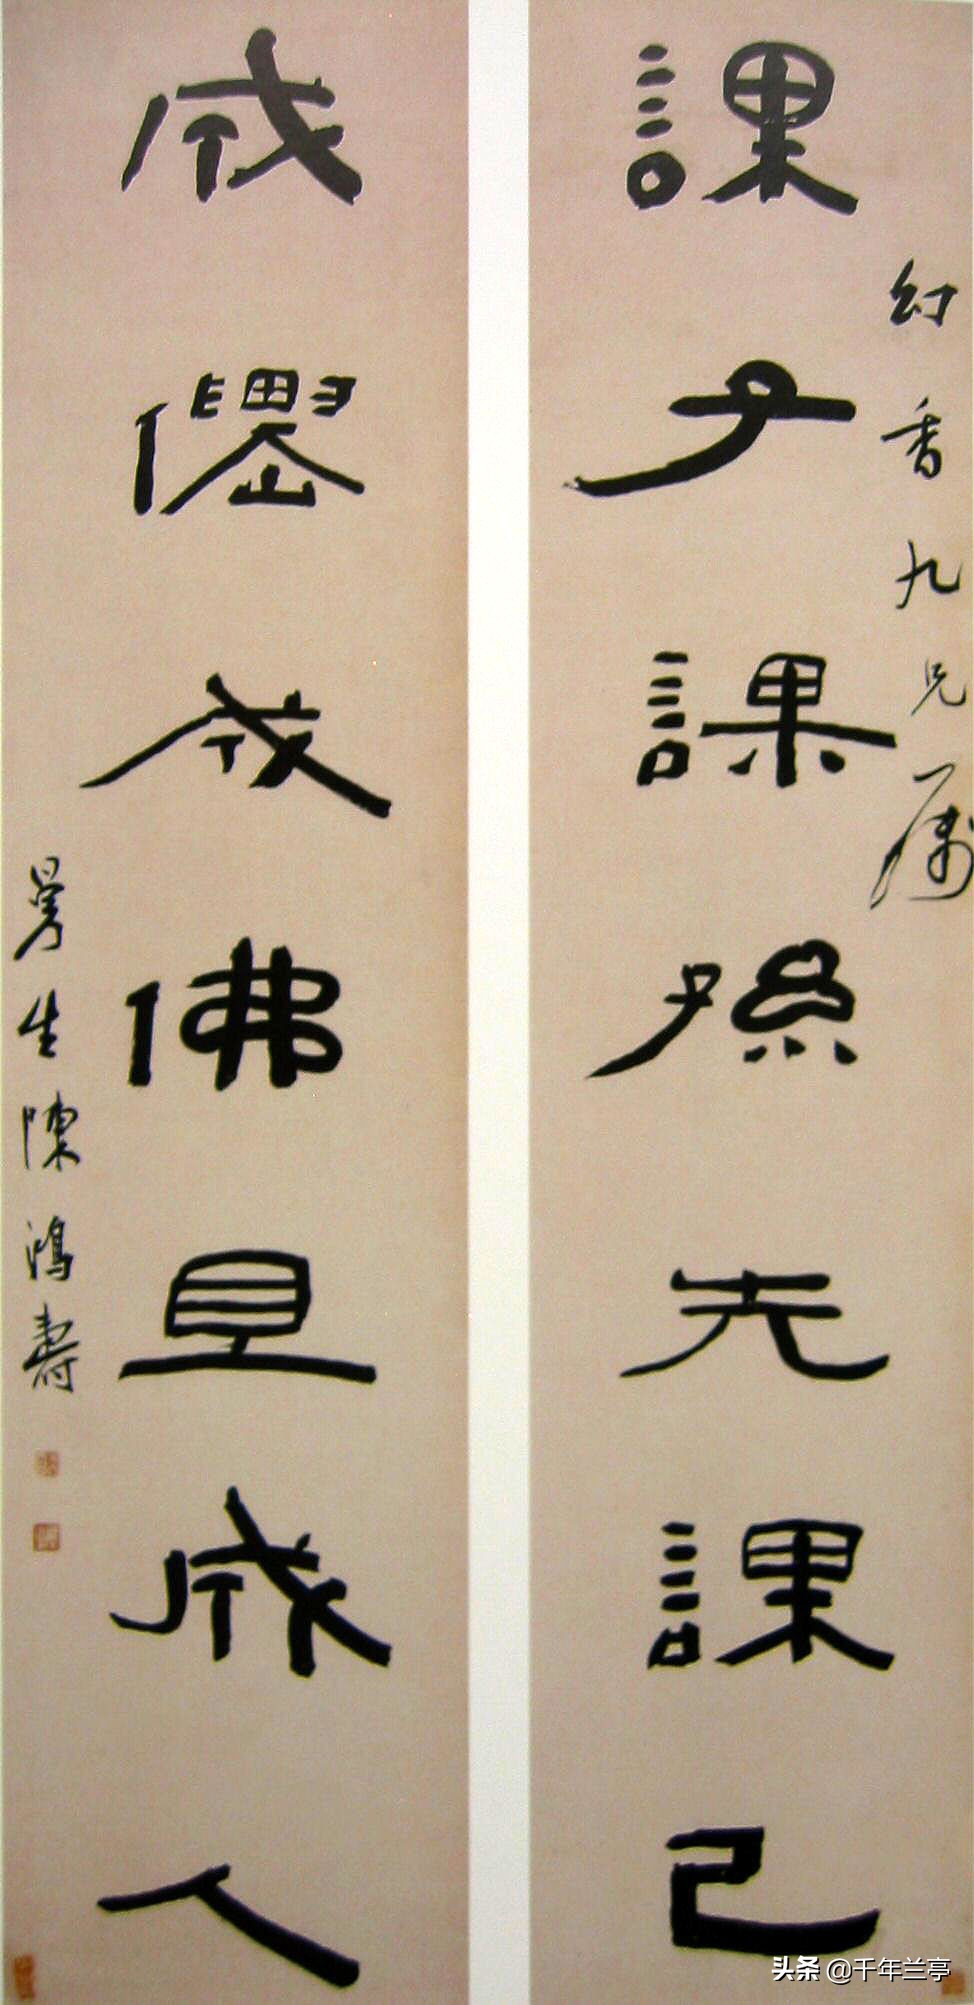 幻香九兄属
課子課孫先課己
成僊成佛且成人
曼生陳鴻壽
头条 @千年兰亭